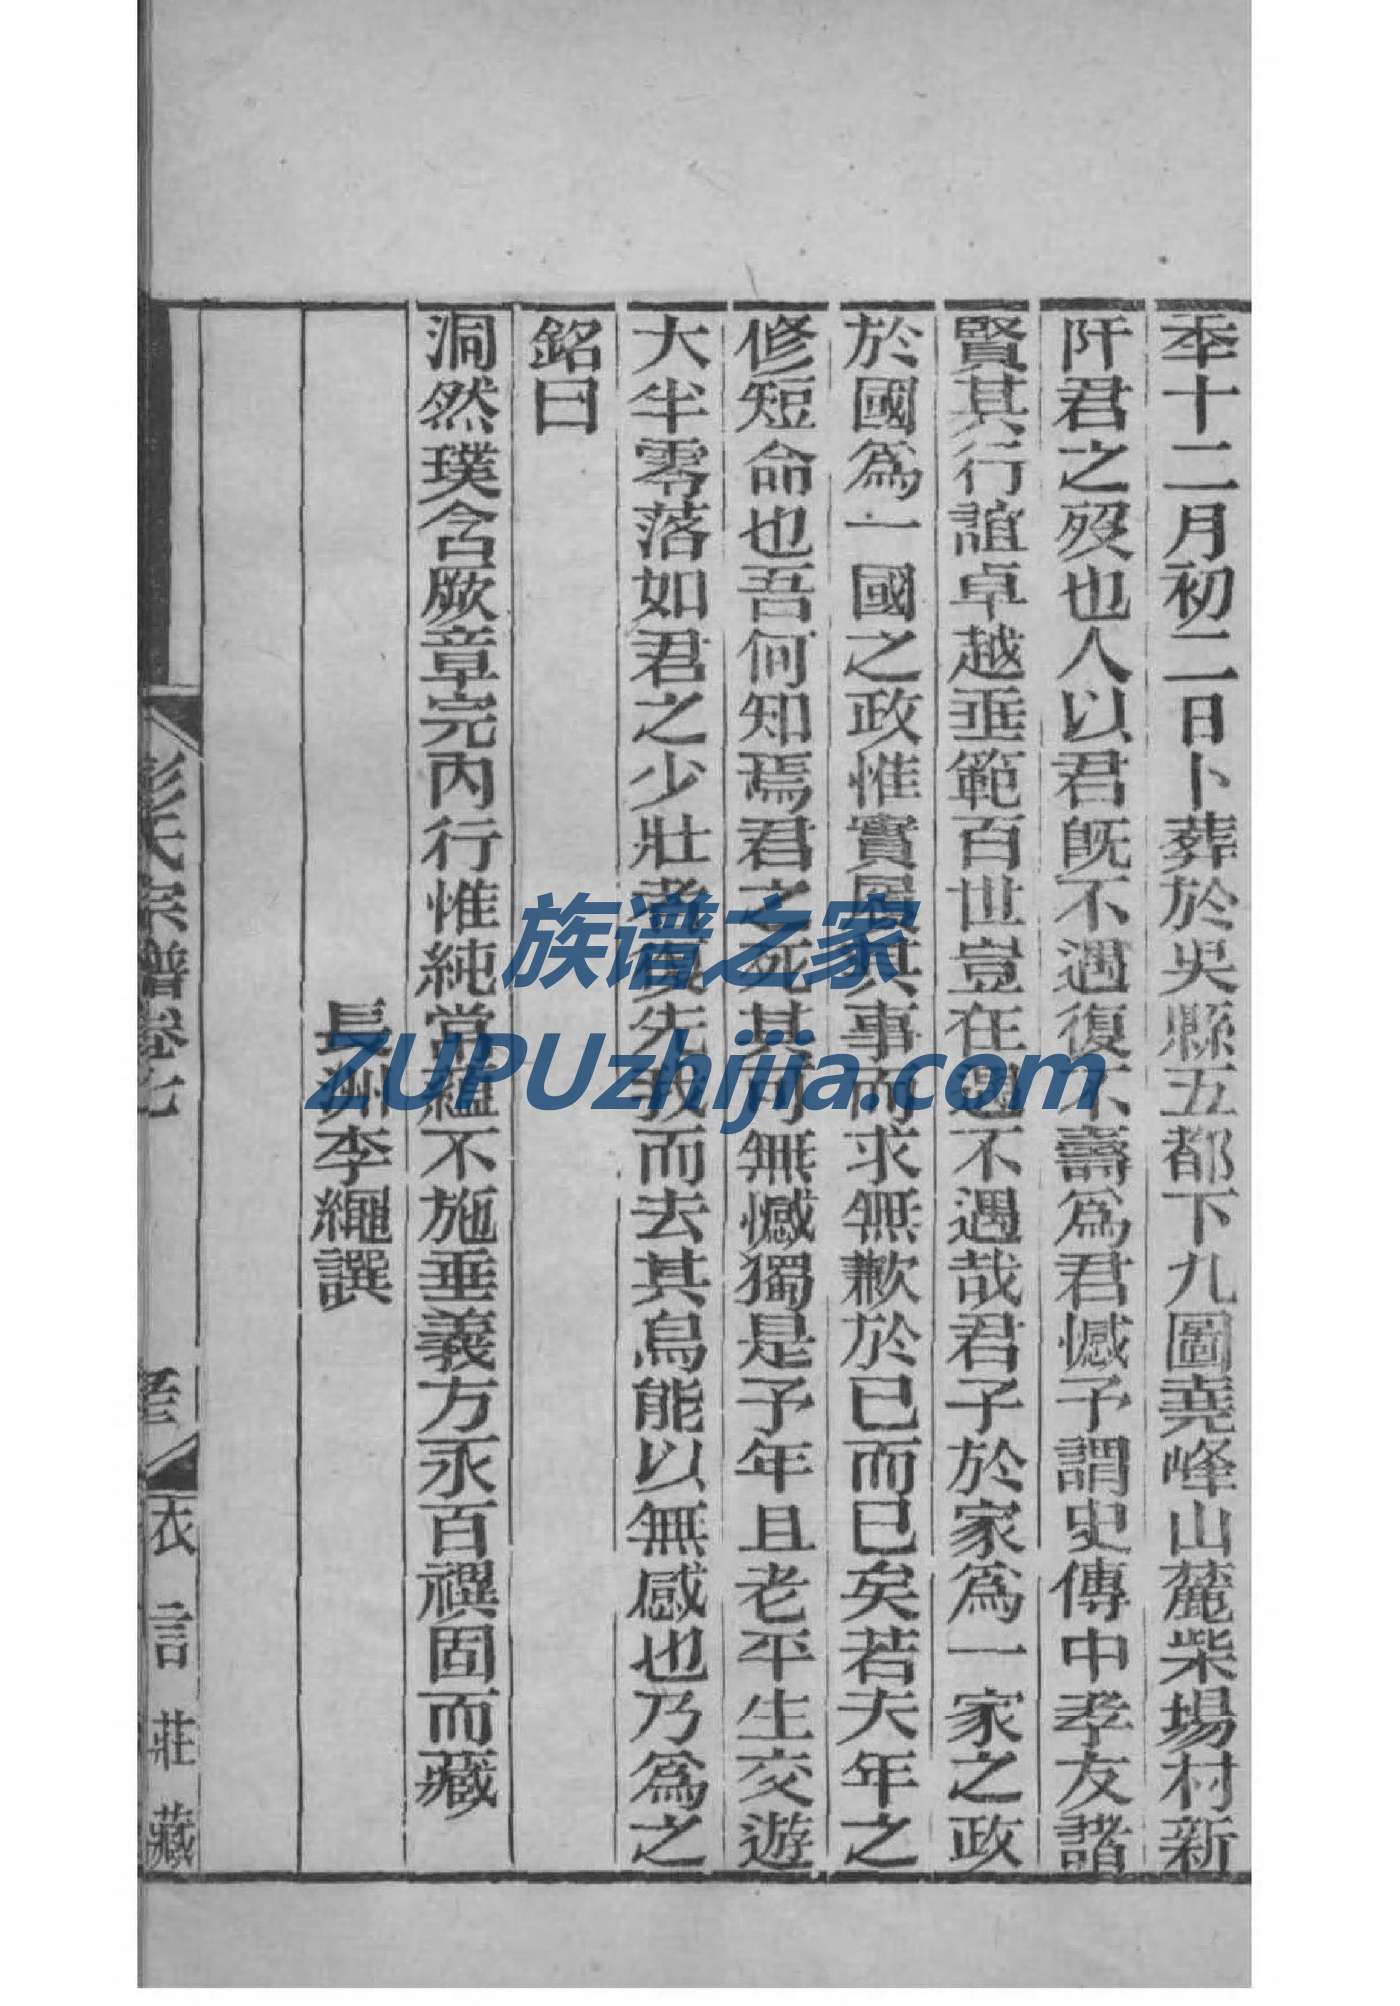 秊十二月初二日卜葬於吳縣五都下九圖堯峰山麓柴場村新
阡君之歿也人以君旣不遇復不壽爲君憾予謂史傳中孝友諸
賢其行誼卓越垂範百世豈在遇不遇哉君子於家爲一家之政
於國爲一國之政惟實展其事而求無歉於已而已矣若夫年之
修短命也吾何知焉君之死其可無憾獨是予年且老平生交遊
大半零落如君之少壯者復先我而去其烏能以無感也乃爲之
銘曰
洞然璞含厥章完內行惟純常蘊不施垂義方永百禩固而藏
長洲李繩譔
彭氏宗譜卷七
衣言莊藏
族谱之家
ZUPUzhijia.com